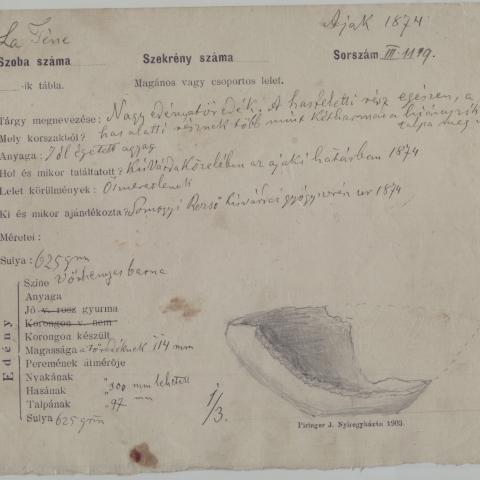 La Tène
Ajak 1874
Szoba száma
Szekrény száma
Sorszám III.1119.
-ik tábla.
Magános vagy csoportos lelet.
Tárgy megnevezése: Nagy edénytöredék. A hasfeletti rész egészen, a
Mely korszakból? has alatti résznek több mint kétharmada hiányzik
talpa meg
Anyaga: Jól égetett agyag
Hol és mikor találtatott? Kisvárda közelében az ajaki határban 1874
Lelet körülmények: Ösmeretlenek
Ki és mikor ajándékozta? Somogyi Rezső kisvárdai gyógyszerész úr 1874
Méretei:
Sulya: 625 gm
Edény
Szine Vörhenyesbarna
Anyaga
Jó v. rosz gyurma
Korongon v. nem
Korongon készült
Magassága a töredéknek 114 mm
Peremének átmérője
Nyakának "
Hasának " 300 mm lehetett
Talpának " 97 mm
Sulya 625 grm
1/3.
Piringer J. Nyiregyháza 1903.